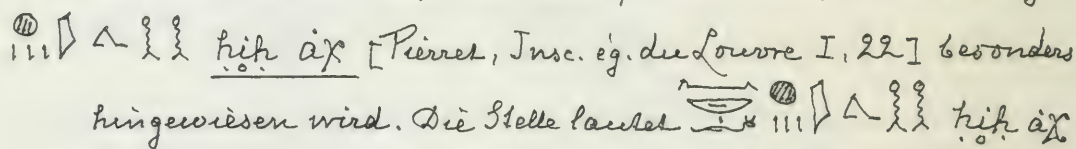 ḥi̥ḥ àχ [Pierret, Insc. ég. du Louvre I, 22] besonders
hingewiesen wird. Die Stelle lautet ḥi̥ḥ àχ